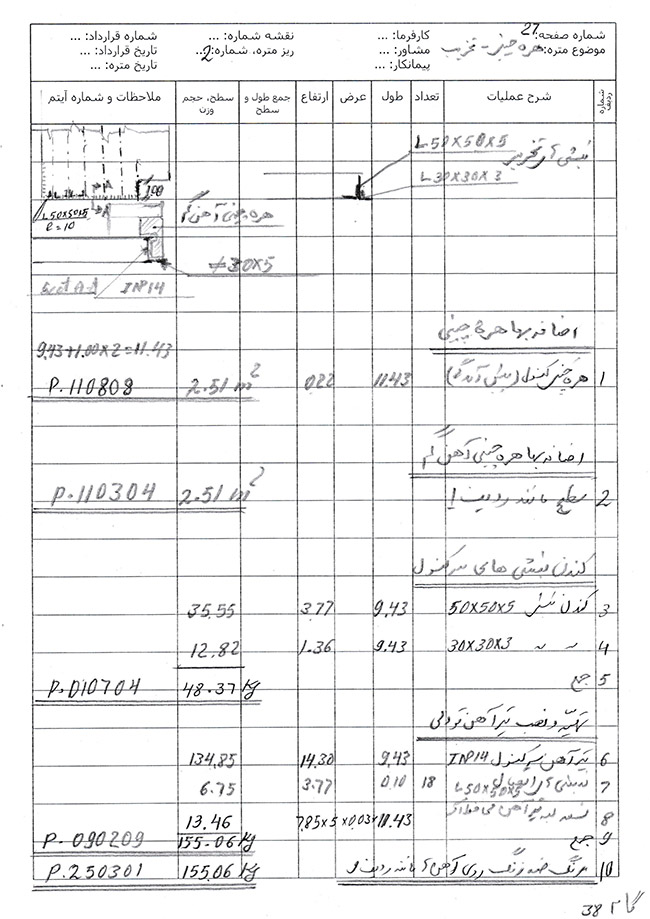 شماره صفحه: 27
کارفرما: ...
نقشه شماره: ...
شماره قرارداد: ...
موضوع متره: هره چینی - تخریب
مشاور: ...
ریز متره، شماره: 2
تاریخ قرارداد: ...
پیمانکار: ...
تاریخ متره: ...
شماره ردیف شرح عملیات تعداد طول عرض ارتفاع جمع طول و سطح سطح، حجم وزن ملاحظات و شماره آیتم
نبشی L50X50X5
L30X30X3
1.00
L50X50X5
e=10
A
A
هره چینی آهنگم
≠30X5
Sect A-A INP14
اضافه بها هره چینی
9.43+1.00X2=11.43
1 هره چینی کنسول (پیش آمدگی) 11.43 0.22 2.51 m² P.110808
اضافه بها هره چینی آهن گم
2 سطح مانند ردیف 1 2.51 m² P.110304
کندن نبشی های سرکنسول
3 کندن نبشی 50X50X5 9.43 3.77 35.55
4 〃 〃 30X30X3 9.43 1.36 12.82
5 جمع 48.37 kg P.010704
تهیه و نصب تیرآهن تودلی
6 تیرآهن سرکنسول INP14 9.43 14.30 134.85
7 نبشی L50X50X5 18 0.10 3.77 6.75
8 تسمه لبه 7.85X5X0.03X11.43 13.46
9 جمع 155.06 kg P.090209
10 رنگ ضد زنگ روی آهن آ مانند ردیف 9 155.06 kg P.250301
گام 38